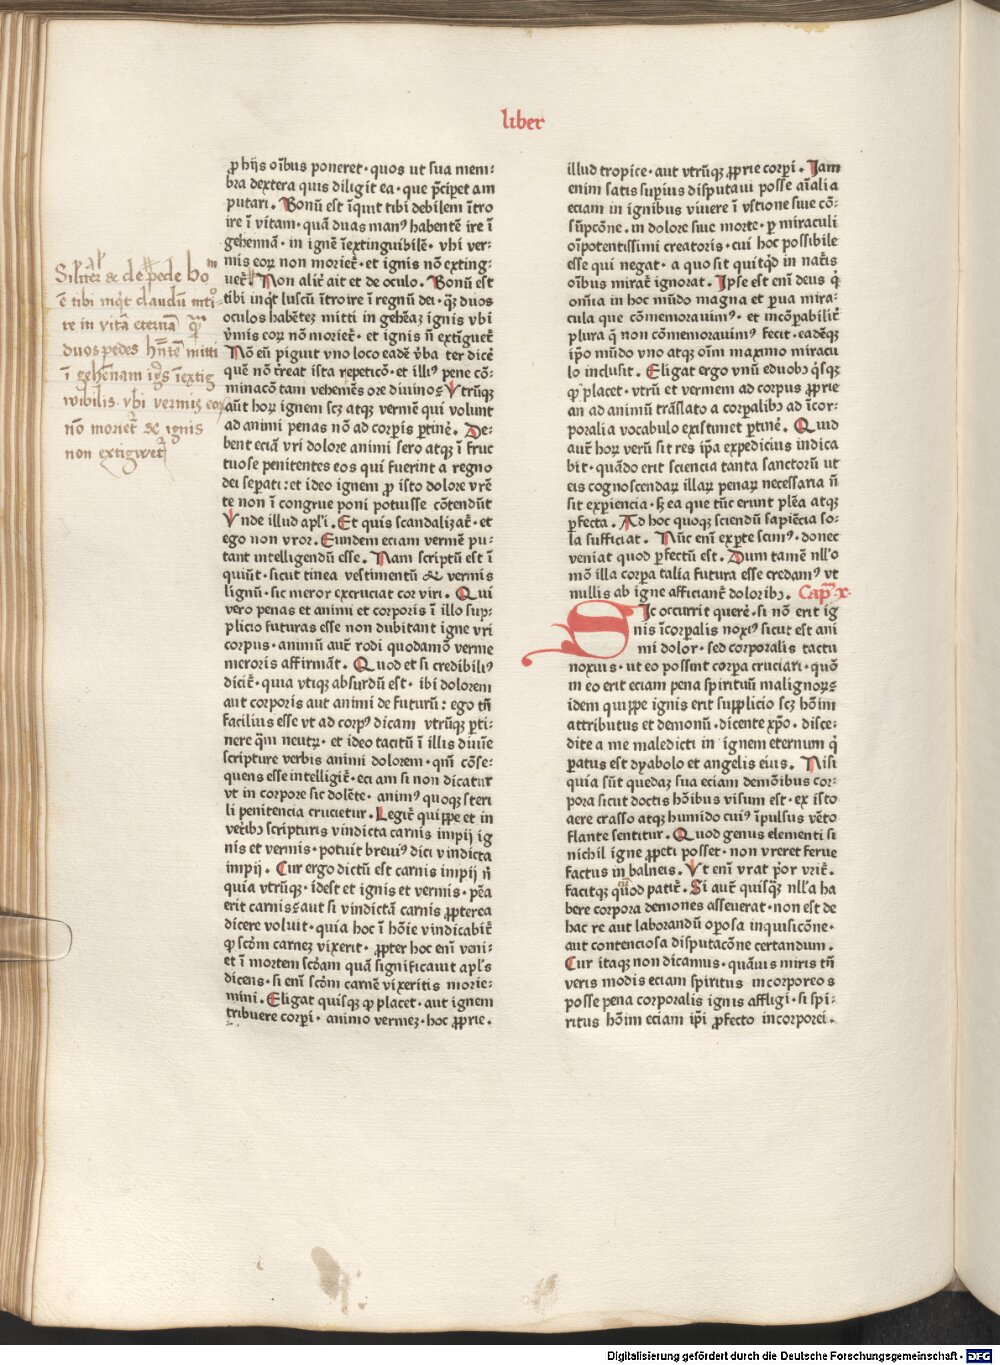 liber
ꝓ hijs oībus poneret · quos ut sua mem⸗
bra dextera quis diligit ea · que p̄cipet am
putari . Bonū est īquit tibi debilem ītro
ire ī vitam · quā duas manꝰ habentē ire ī
gehennā · in ignē īextinguibilē · vbi ver⸗
mis eoꝝ non moriet̄ · et ignis nō exting⸗
uet̄ Non alit̄ ait et de oculo . Bonū est
tibi inq̄t luscū ītroire ī regnū dei · qꝫ duos
oculos habētez mitti in gehēaz ignis vbi
v̄mis eoꝝ nō moriet̄ · et ignis n̄ extīguet̄
Nō eū piguit vno loco eadē v̄ba ter dicē
quē nō t̄reat ista repeticō · et illiꝰ pene cō⸗
minacō tam vehemēs ore diuino⸗ Vtrūqꝫ
aūt hoꝝ ignem scꝫ atqꝫ vermē qui volunt
ad animi penas nō ad corpis ꝑtinē . De⸗
bent eciā vri dolore animi sero atqꝫ ī fruc
tuose penitentes eos qui fuerint a regno
dei seꝑati : et ideo ignem ꝓ isto dolore vrē
te non ī congrue poni potuisse cōtendūt
Vnde illud apl̄i . Et quis scandalizat̄ · et
ego non vror . Eundem eciam vermē pu⸗
tant intelligendū esse . Nam scriptū est ī
quiūt · sicut tinea vestimentū & vermis
lignū · sic meror excruciat cor viri . Qui
vero penas et animi et corporis ī illo sup⸗
plicio futuras esse non dubitant igne vri
corpus · animū aut̄ rodi quodāmō verme
meroris affirmāt . Quod et si credibiliꝰ
dicit̄ · quia vtiqꝫ absurdū est · ibi dolorem
aut corporis aut animi de futurū : ego tn̄
facilius esse vt ad corpꝰ dicam vtrūqꝫ ꝑti⸗
nere q̄m neutꝝ · et ideo tacitū ī illis diuīe
scripture verbis animi dolorem · qm̄ cōse⸗
quens esse intelligit̄ · eci am si non dicatur
vt in corpore sic dolēte · animꝰ quoqꝫ steri
li penitencia crucietur . Legit̄ quippe et in
vet̄ibꝫ scripturis vindicta carnis impij ig
nis et vermis · potuit breuiꝰ dici vindicta
impij . Cur ergo dictū est carnis impij n̄
quia vtrūqꝫ · idest et ignis et vermis · pēa
erit carnis⸗ aut si vindictā carnis ꝓpterea
dicere voluit · quia hoc ī hōie vindicabit̄
ꝙ scd̄m carnez vixerit · ꝓpter hoc enī veni⸗
et ī mortem scd̄am quā significauit apl̄s
dicens · si enī scd̄m carnē vixeritis morie⸗
mini . Eligat quisqꝫ ꝙ placet · aut ignem
tribuere corꝑi · animo vermez · hoc ꝓprie .
Silit̄er & de pede bo
ē tibi inq̄t claudū ītro
ire in vitā eternā q̄m
duos pedes hn̄tē mitti
ī gehēnam ignis īextig
wibilis · vbi vermis eoꝝ
nō moriet̄ & ignis
non extigwet̄
illud tropice · aut vtrūqꝫ ꝓprie corꝑi . Jam
enim satis suꝑius disputaui posse aīalia
eciam in ignibus viuere ī vstione siue cō⸗
sūpcōne · in dolore siue morte · ꝑ miraculi
oīpotentissimi creatoris · cui hoc possibile
esse qui negat · a quo sit quitqd̄ in nat̄is
oībus mirat̄ ignorat . Ipse est enī deus q̄
om̄ia in hoc mūdo magna et ꝑua mira⸗
cula que cōmemorauimꝰ · et incōꝑabilit̄
plura q̄ non cōmemorauimꝰ fecit · eadēqꝫ
ip̄o mūdo vno atqꝫ oīm maximo miracu
lo inclusit . Eligat ergo vnū eduobꝫ q̄sqꝫ
ꝙ placet · vtrū et vermem ad corpus ꝓprie
an ad animū trāslato a corꝑalibꝫ ad īcor⸗
poralia vocabulo existimet ꝑtinē . Quid
aut̄ hoꝝ verū sit res ip̄a expedicius indica
bit · quādo erit sciencia tanta sanctorū ut
eis cognoscendaꝝ illaꝝ penaꝝ necessaria n̄
sit exꝑiencia · sꝫ ea que tūc erunt plēa atqꝫ
ꝑfecta . Ad hoc quoqꝫ sciendū sapiēcia so⸗
la sufficiat . Nūc enī exꝑte scimꝰ · donec
veniat quod ꝑfectū est . Dum tamē nll'o
mō illa corꝑa talia futura esse credamꝰ vt
nullis ab igne afficiant̄ doloribꝫ . Cap̄ · x ·
Sic occurrit querē · si nō erit ig
nis īcorꝑalis noxiꝰ sicut est ani
mi dolor · sed corporalis tactu
noxius · ut eo possint corꝑa cruciari · quō
in eo erit eciam pena spirituū malignoꝝ⸗
idem quippe ignis erit supplicio scꝫ hōim
attributus et demonū · dicente xp̄o · disce⸗
dite a me maledicti in ignem eternum q̄
ꝑatus est dyabolo et angelis eius . Nisi
quia sūt quedaꝫ sua eciam demōibus cor⸗
pora sicut doctis hōibus visum est · ex isto
aere crasso atqꝫ humido cuiꝰ īpulsus vēto
flante sentitur . Quod genus elementi si
nichil igne ꝓpeti posset · non vreret ferue
factus in balneis . Vt enī vrat p̄or vrit̄ .
facitqꝫ qd̄ patit̄ . Si aut̄ quisqꝫ nll'a ha
bere corpora demones asseuerat · non est de
hac re aut laborandū oꝑosa inquisicōne ·
aut contenciosa disputacōne certandum .
Cur itaqꝫ non dicamus · quāuis miris tn̄
veris modis eciam spiritus incorporeos
posse pena corporalis ignis affligi · si spi⸗
ritus hōim eciam ip̄i ꝓfecto incorporei .
Digitalisierung gefördert durch die Deutsche Forschungsgemeinschaft - DFG